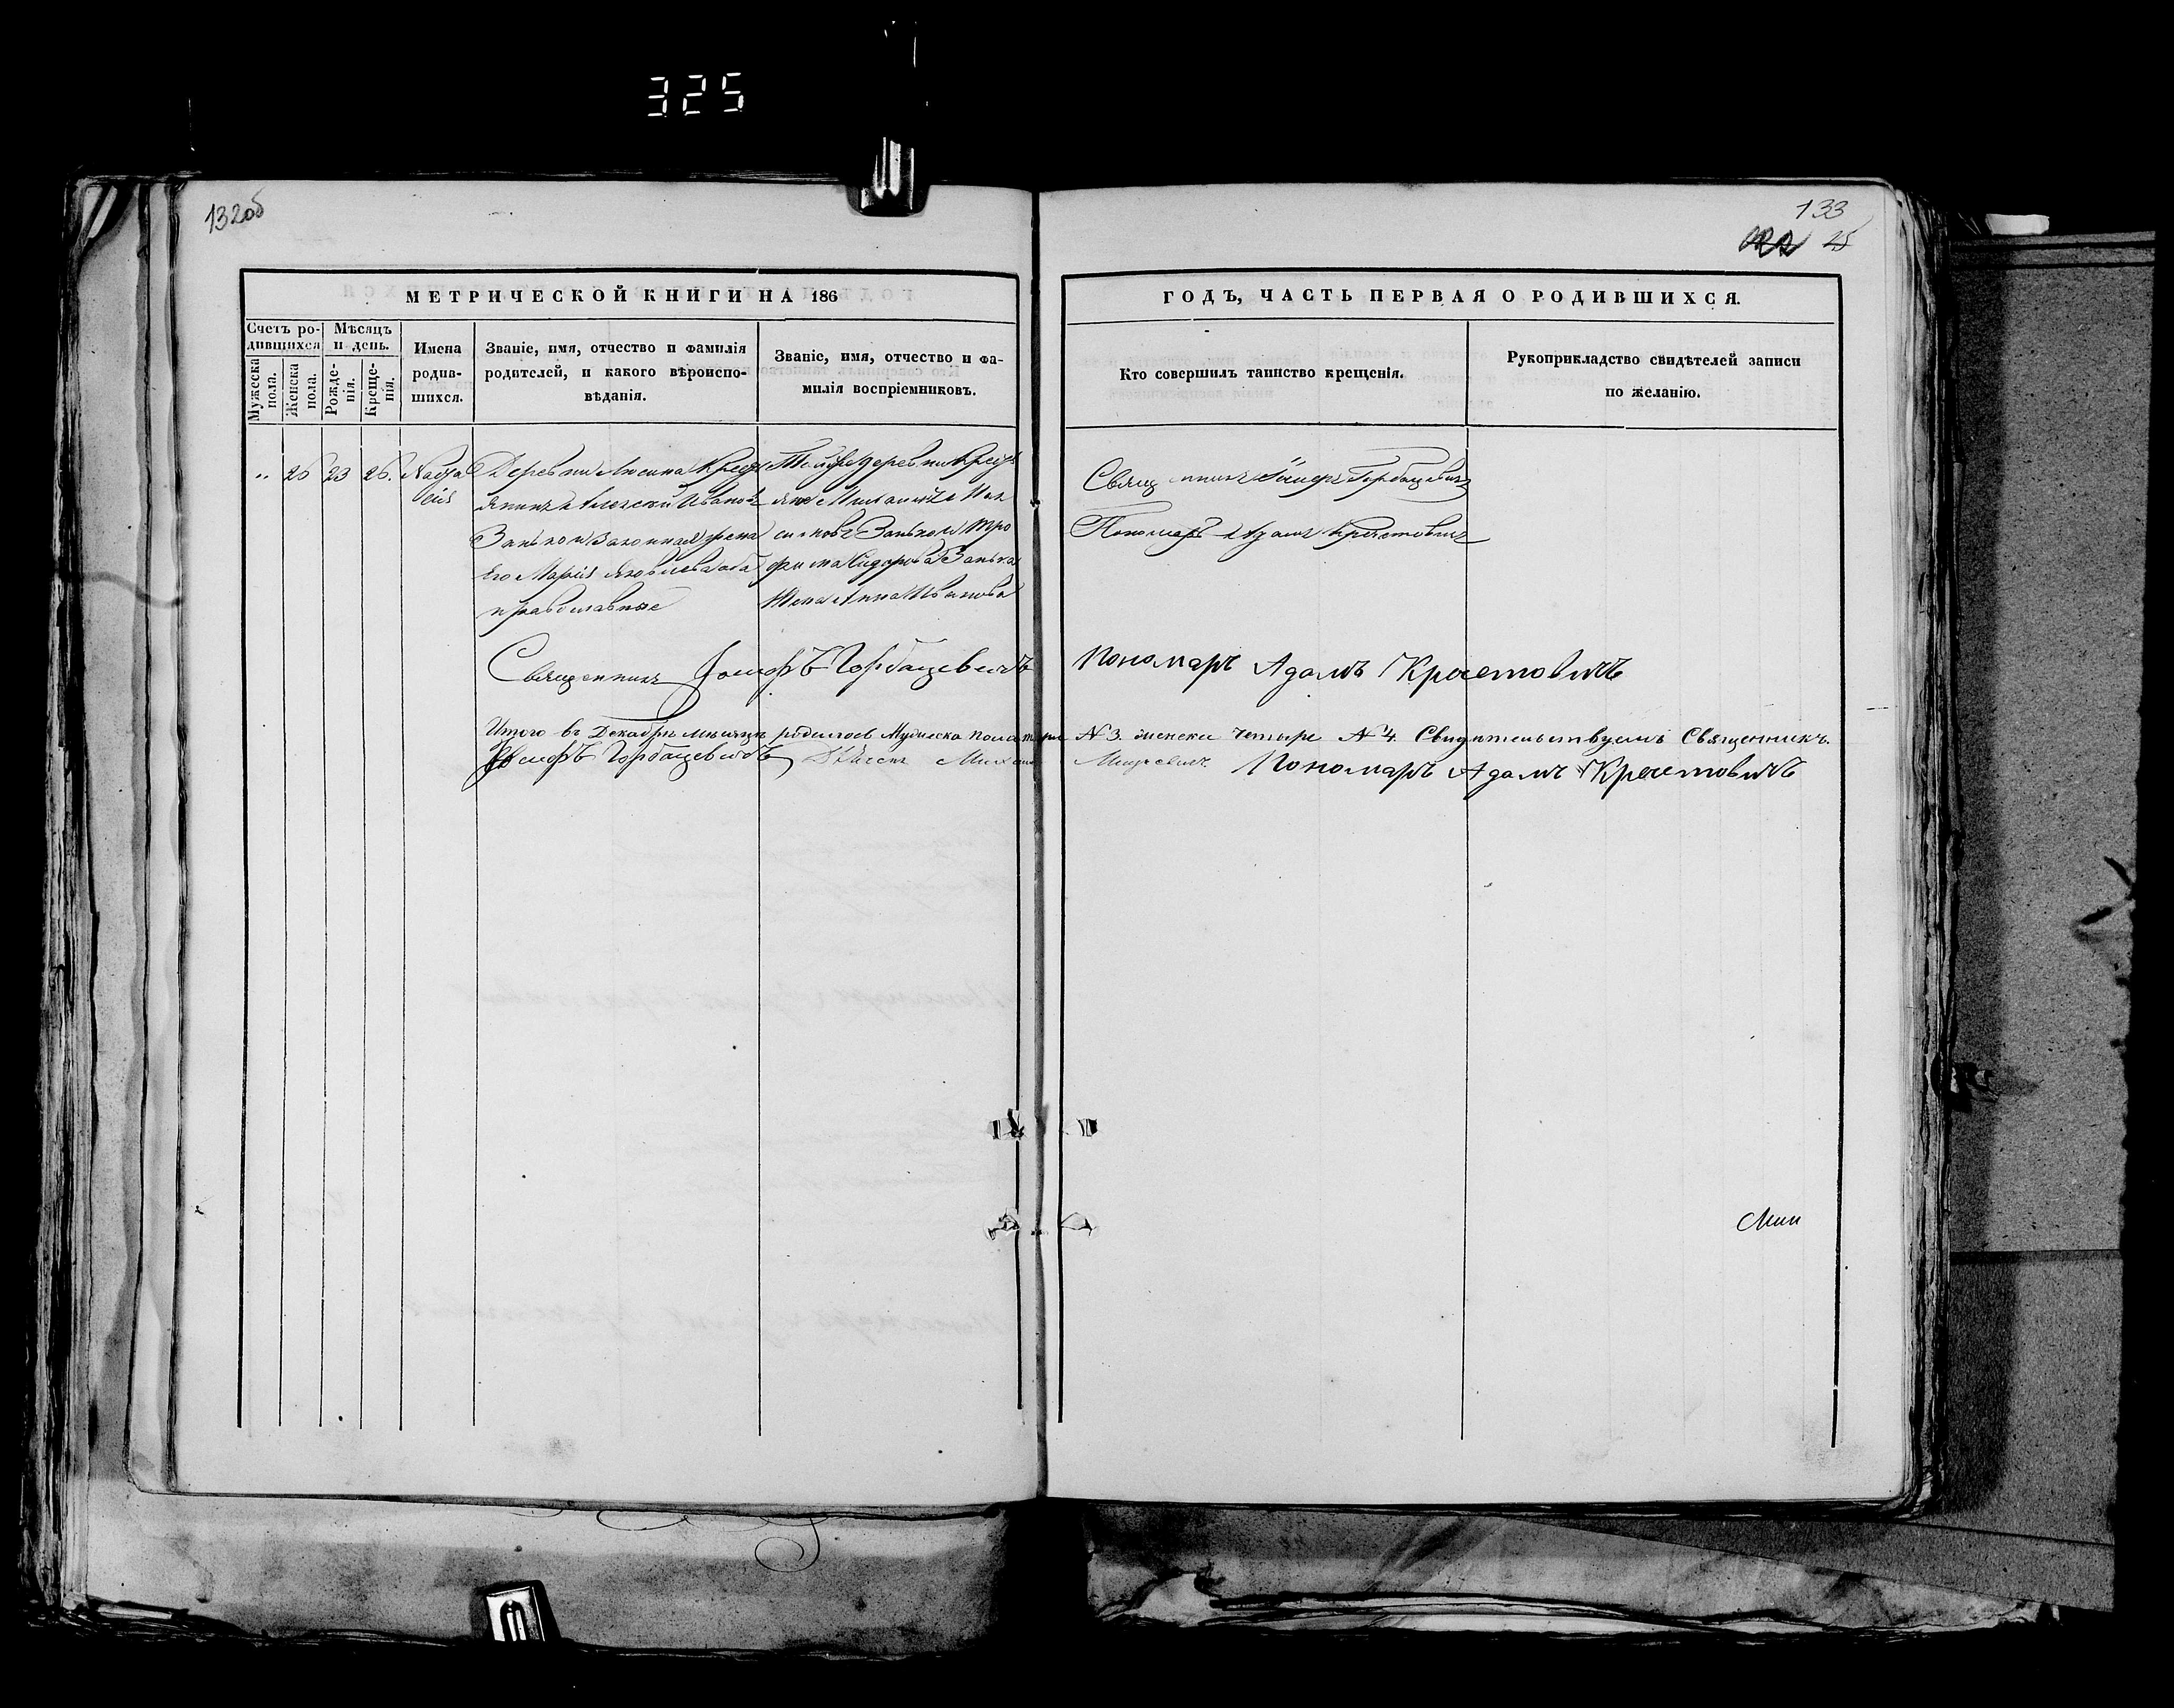 325
132об
133
25
МЕТРИЧЕСКОЙ КНИГИ НА 186
ГОДЪ, ЧАСТЬ ПЕРВАЯ О РОДИВШИХСЯ.
Счетъ ро-
дившихся
Мѣсяцъ
и день.
Мужеска
пола.
Женска
пола.
Рожде-
нія.
Креще-
нія.
Имена
родив-
шихся.
Званіе, имя, отчество и фамилія
родителей, и какого вѣроиспо-
вѣданія.
Званіе, имя, отчество и фа-
милія воспріемниковъ.
Кто совершилъ таинство крещенія.
Рукоприкладство свидѣтелей записи
по желанію.
26 23 26.
Деревни Люсина Крест
янинъ Алексѣй Ивановъ
Занько и законная жена
его Марія Яковлева оба
православные
Тойже деревни Крест
янѣ
Занько и Тро
фима Сидорова Занька
жена Анна Иванова
Священникъ Іосифъ Горбацевичъ
Пономарь Адамъ Крестовичъ
Священникъ Іосифъ Горбацевичъ
Пономаръ Адамъ Крестовичъ
Итого въ Декабрѣ мѣсяцѣ родилось Мужеска пола три N 3. женска четыре N 4. Свидѣтельствуемъ Священникъ.
Іосифъ Горбацевичъ Дьячекъ Михаилъ Мицкевичъ. Пономаръ Адамъ Крестовичъ